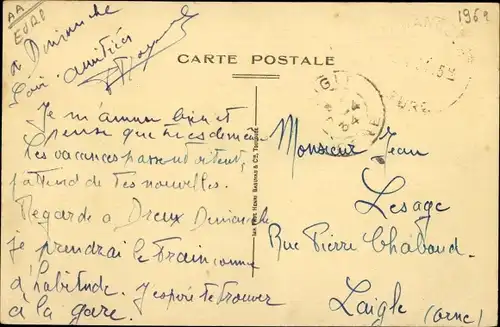 AA
1969
a Dimanche
amitiés
CARTE POSTALE
Je m'amuse bien et
pense que tu es de même
Les vacances passent vite et
j'attend de tes nouvelles.
Regarde a Dreux Dimanche
je prendrai le train comme
d'habitude. J'espère te trouver
à la gare.
Monsieur Jean
Lesage
Rue Pierre Chabaud.
Laigle (Orne)